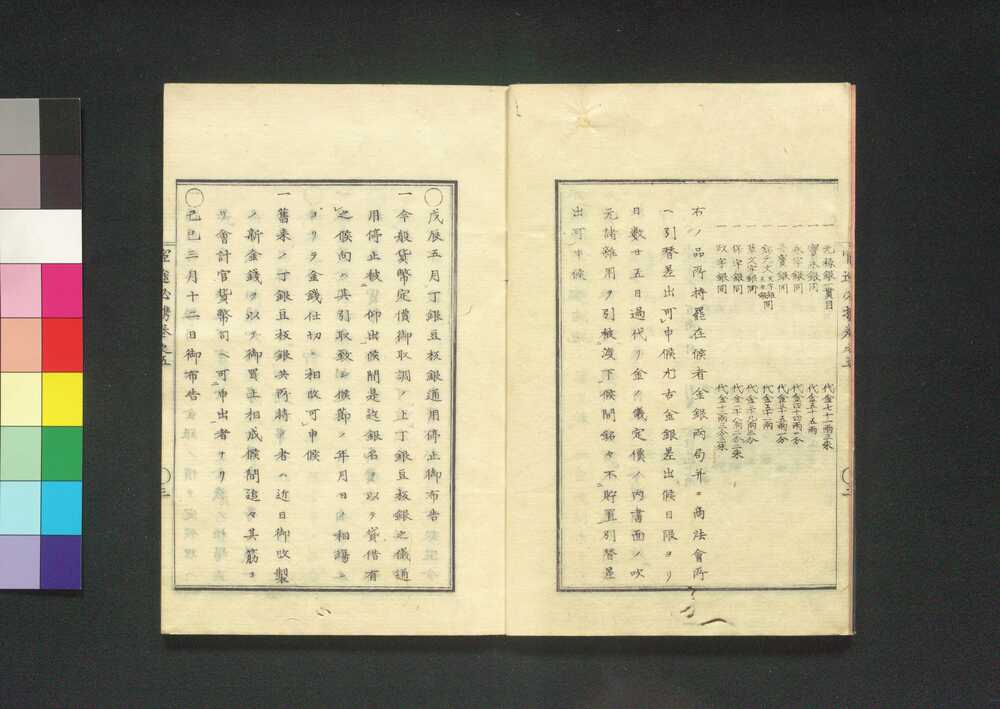 一 元禄銀一貫目 代金七十一両三朱
一 寳永銀同 代金五十五両
一 永字銀同 代金四十四両一分
一 三寳銀同 代金三十五両一分
代金五十二両
一 草文字銀同
一 保字銀同
一 政字銀同
右ノ品所持罷在候者金銀両局并ニ商法會所
ヘ引替差出可申候尤古金銀差出候日限ヨリ
日數廿五日過代リ金ノ儀定價ノ内書面ノ吹
元諸雑用ヲ引被渡下候間銘々不貯置引替差
出可申候
◯戊辰五月丁銀豆板銀通用停止御布告
一 今般貨幣定價御取調ノ上丁銀豆板銀之儀通
用停止被 仰出候間是迄銀名ヲ以テ貸借有
之候向ハ其引取致シ候節ノ年月日ノ相場ニ
ヨリ金銭仕切ニ相改可申候
一 舊来ノ丁銀豆板銀共所持ノ者ハ近日御吹製
ノ新金銭ヲ以テ御買上相成候間追々其筋ヨ
リ會計官貨幣司ヘ可申出者ナリ
◯己巳三月十二日御布告